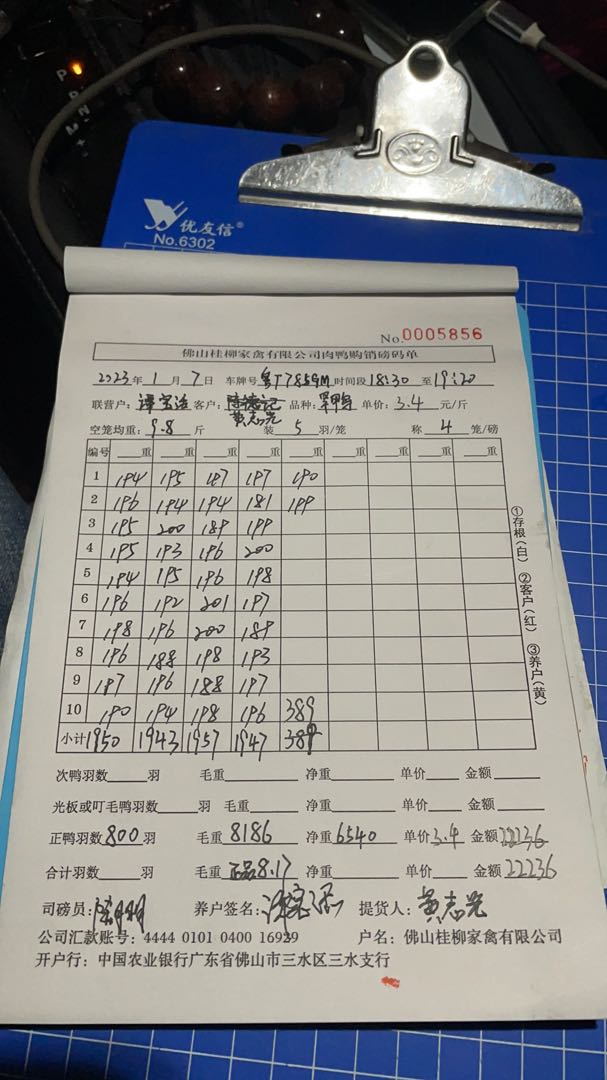 P
R
N
M
+
优友信®
No.6302
No.0005856
佛山桂柳家禽有限公司肉鸭购销磅码单
2023年1月7日 车牌号粤T7859M时间段18:30至19:20
联营户: 客户: 陈德记 品种: 单价: 3.4 元/斤
黄志光
空笼均重: 9.8 斤 装 5 羽/笼 称 4 笼/磅
编号 重 重 重 重 重 重 重 重 重
1 194 195 197 197 190
2 196 194 194 181 199
3 195 200 189 199
4 195 193 196 200
5 194 195 196 198
6 196 192 201 197
7 198 196 200 189
8 196 188 198 193
9 197 196 188 197
10 190 194 198 196 389
小计 1950 1943 1957 1947 389
①存根(白) ②客户(红) ③养户(黄)
次鸭羽数 羽 毛重 净重 单价 金额
光板或叮毛鸭羽数 羽 毛重 净重 单价 金额
正鸭羽数800羽 毛重8186 净重6540 单价3.4 金额22236
合计羽数 羽 毛重 正品8.17 净重 单价 金额22236
司磅员: 养户签名: 提货人: 黄志光
公司汇款账号: 4444 0101 0400 16929 户名: 佛山桂柳家禽有限公司
开户行: 中国农业银行广东省佛山市三水区三水支行